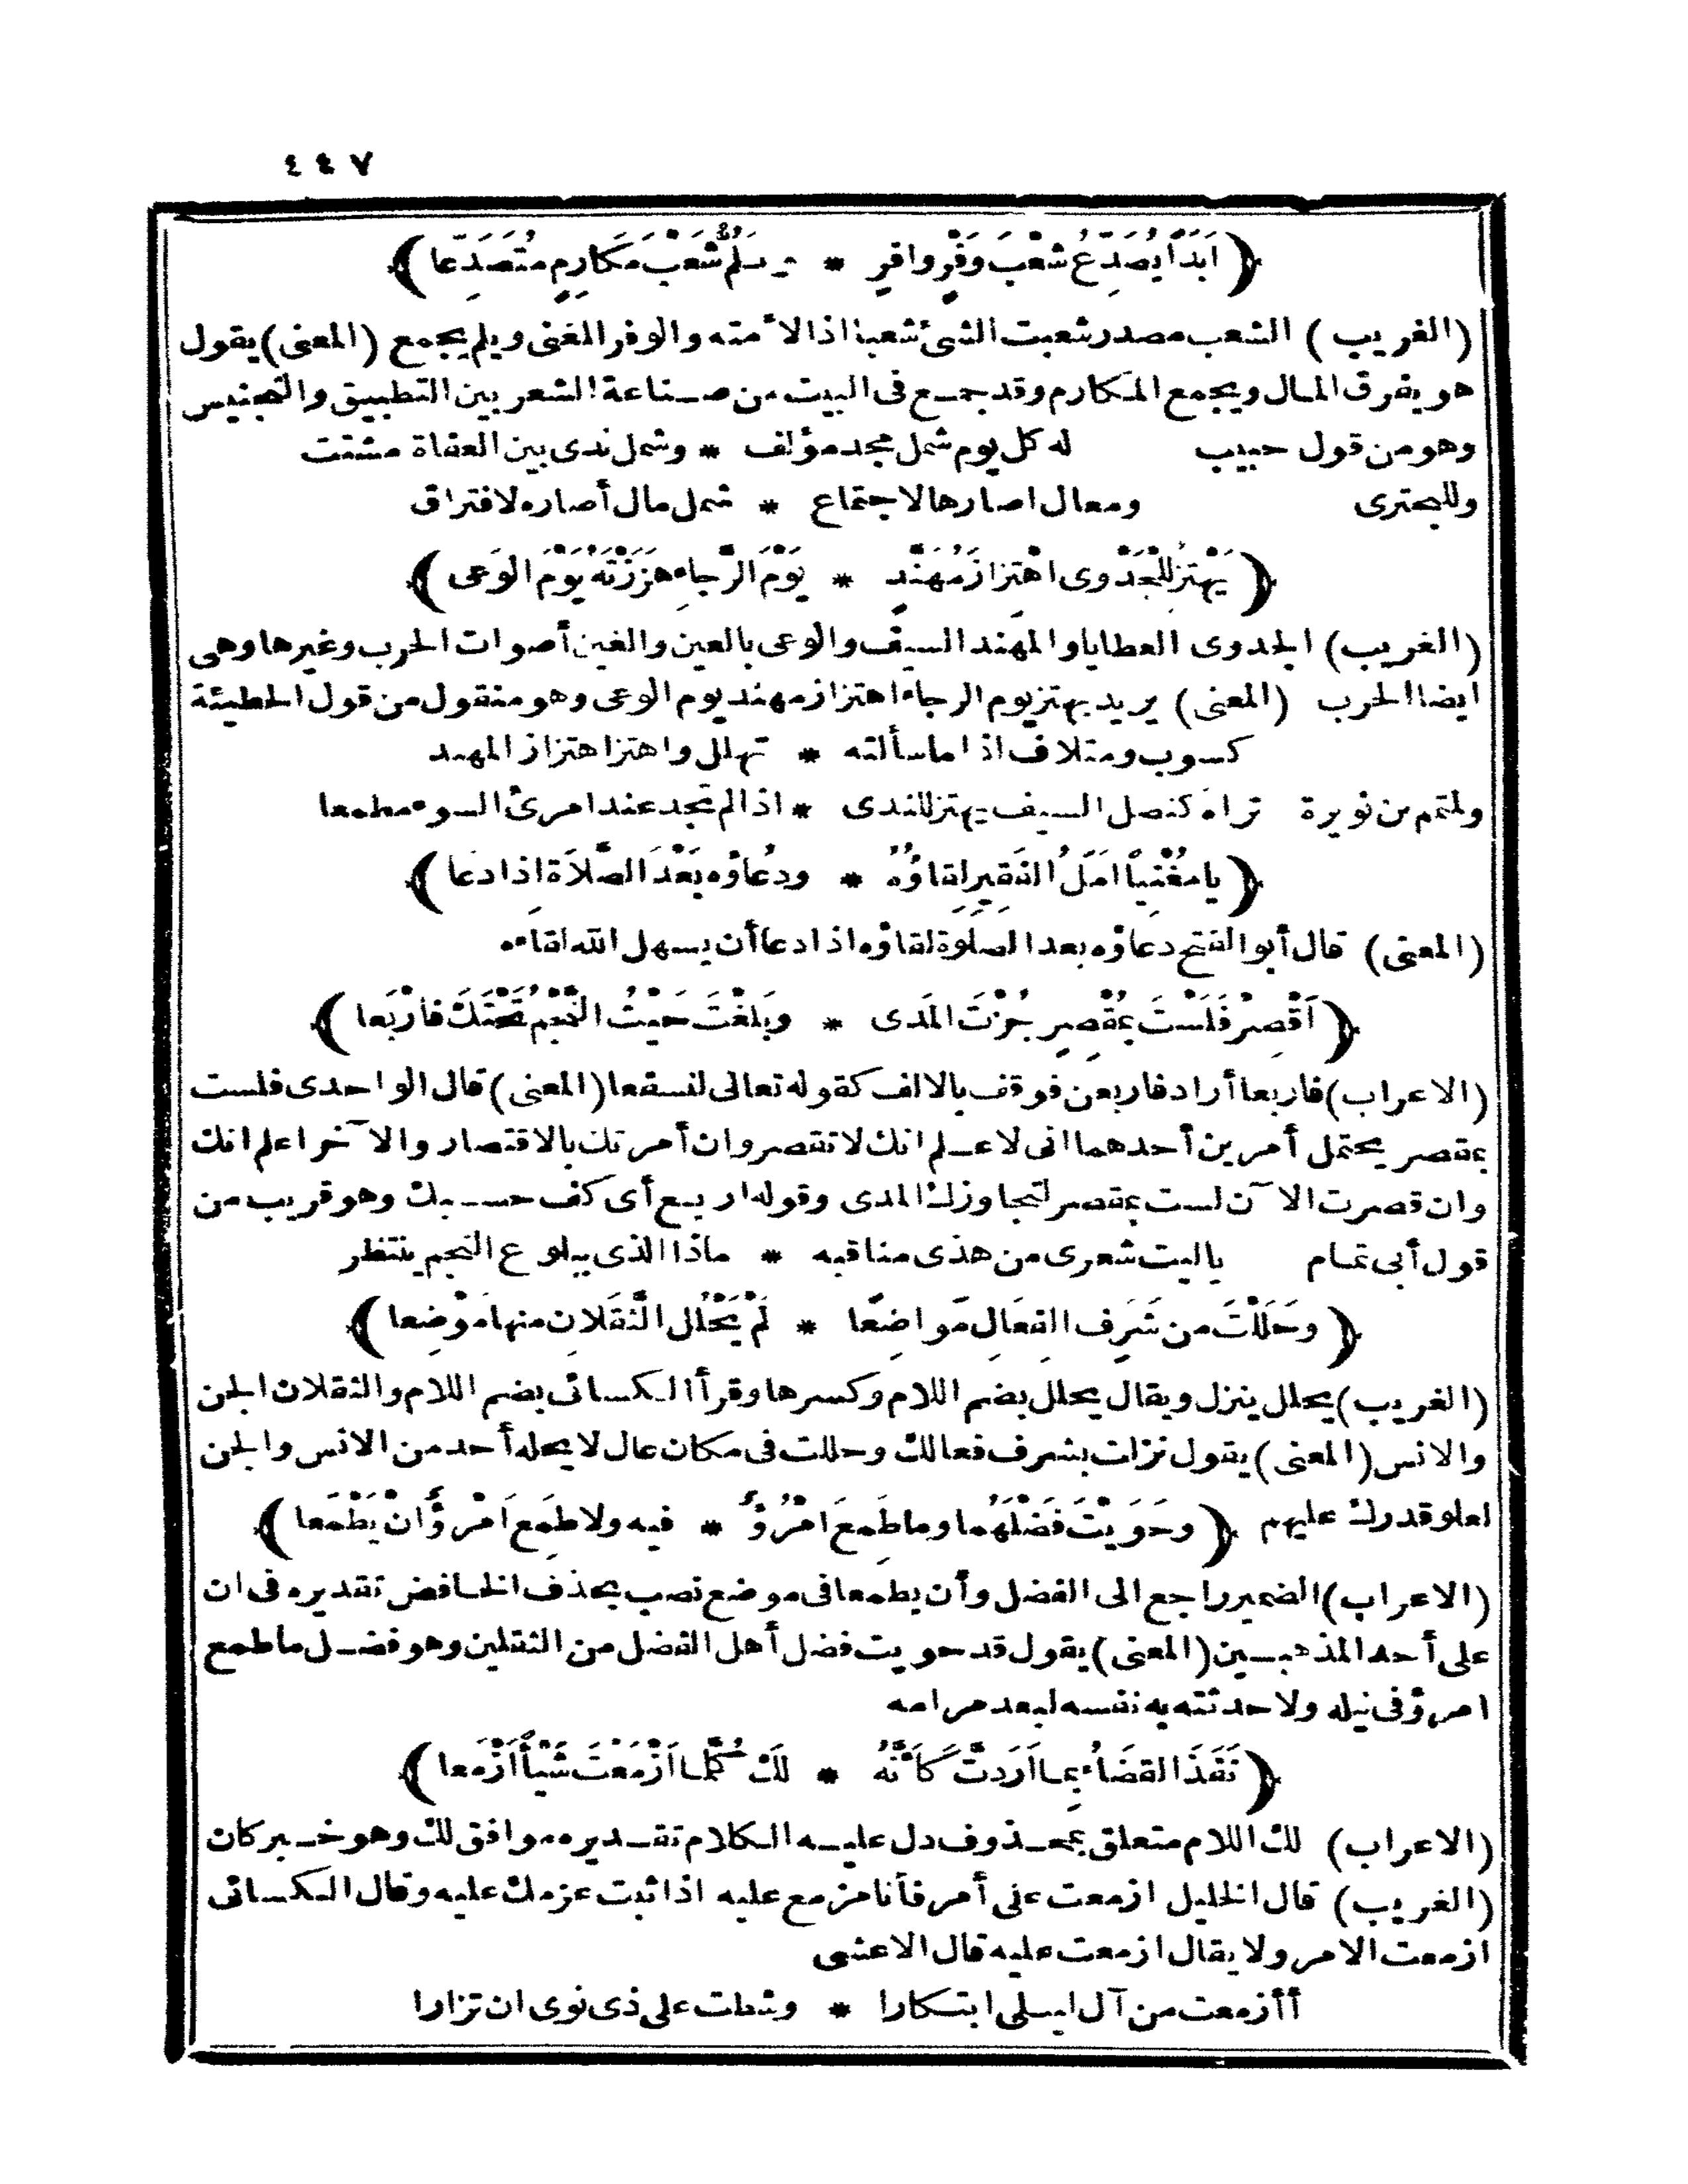 ٤٤٧
﴿أَبَدًا يُصَدِّعُ شَعْبَ وَفْرٍ وافِرٍ * ويَلُمُّ شَعْبَ مَكارِمٍ مُتَصَدِّعا﴾
(الغريب) الشعب مصدر شعبت الشئ شعبا اذا لاءمته والوفر الغنى ويلم يجمع (المعنى) يقول
هو يفرق المال ويجمع المكارم وقد جمع فى البيت من صناعة الشعر بين التطبيق والتجنيس
وهو من قول حبيب له كل يوم شمل مجد مؤلف * وشمل ندى بين العفاة مشتت
وللبحترى ومعال اصارها لاجتماع * شمل مال أصاره لافتراق
﴿يَهْتَزُّ لِلْجَدْوى اهْتِزازَ مُهَنَّدٍ * يَوْمَ الرَّجاءِ هَزَزْتَهُ يَوْمَ الوَعى﴾
(الغريب) الجدوى العطايا والمهند السيف والوعى بالعين والغين أصوات الحرب وغيرها وهى
ايضا الحرب (المعنى) يريد يهتز يوم الرجاء اهتزاز مهند يوم الوعى وهو منقول من قول الحطيئة
كسوب ومتلاف اذا ما سألته * تهلل واهتز اهتزاز المهند
ولمتمم بن نويرة تراه كنصل السيف يهتز للندى * اذا لم تجد عند امرئ السوء مطمعا
﴿يا مُغْنِيًا أَمَلَ الفَقيرِ لِقاؤُهُ * ودُعاؤُه بَعْدَ الصَّلاةِ اذا دَعا﴾
(المعنى) قال أبو الفتح دعاؤه بعد الصلوة لقاؤه اذا دعا أن يسهل الله لقاءه
﴿أَقْصِرْ فَلَسْتَ بِمُقْصِرٍ جُزْتَ المَدى * وبَلَغْتَ حَيْثُ النَّجْمُ تَحْتَكَ فارْبَعا﴾
(الاعراب) فاربعا أراد فاربعن فوقف بالالف كقوله تعالى لنسفعا (المعنى) قال الواحدى فلست
بمقصر يحتمل أمرين أحدهما انى لاعلم انك لا تقصر وان أمرتك بالاقتصار والآخر اعلم انك
وان قصرت الآن لست بمقصر لتجاوزك المدى وقوله اربع أى كف حسبك وهو قريب من
قول أبى تمام ياليت شعرى من هذى مناقبه * ماذا الذى ببلوغ النجم ينتظر
﴿وحَلَلْتَ من شَرَفِ الفَعالِ مَواضِعًا * لَمْ يَحْلُلِ الثَّقَلانِ منها مَوْضِعا﴾
(الغريب) يحلل ينزل ويقال يحلل بضم اللام وكسرها وقرأ الكسائى بضم اللام والثقلان الجن
والانس (المعنى) يقول نزلت بشرف فعالك وحللت فى مكان عال لا يحله أحد من الانس والجن
لعلو قدرك عليهم ﴿وحَوَيْتَ فَضْلَهُما وما طَمِعَ امْرُؤٌ * فيه ولا طَمِعَ امْرُؤٌ أَنْ يَطْمَعا﴾
(الاعراب) الضمير راجع الى الفضل وأن يطمعا فى موضع نصب بحذف الخافض تقديره فى ان
على أحد المذهبين (المعنى) يقول قد حويت فضل أهل الفضل من الثقلين وهو فضل ما طمع
امرؤ فى نيله ولا حدثته به نفسه لبعد مرامه
﴿نَفَذَ القَضاءُ بِما أَرَدْتَ كَأَنَّهُ * لَكَ كُلَّما أَزْمَعْتَ شَيْأً أَزْمَعا﴾
(الاعراب) لك اللام متعلق بمحذوف دل عليه الكلام تقديره موافق لك وهو خبر كان
(الغريب) قال الخليل ازمعت على أمر فأنا مزمع عليه اذا ثبت عزمك عليه وقال الكسائى
ازمعت الامر ولا يقال ازمعت عليه قال الاعشى
أأزمعت من آل ليلى ابتكارا * وشطت على ذى نوى ان تزارا